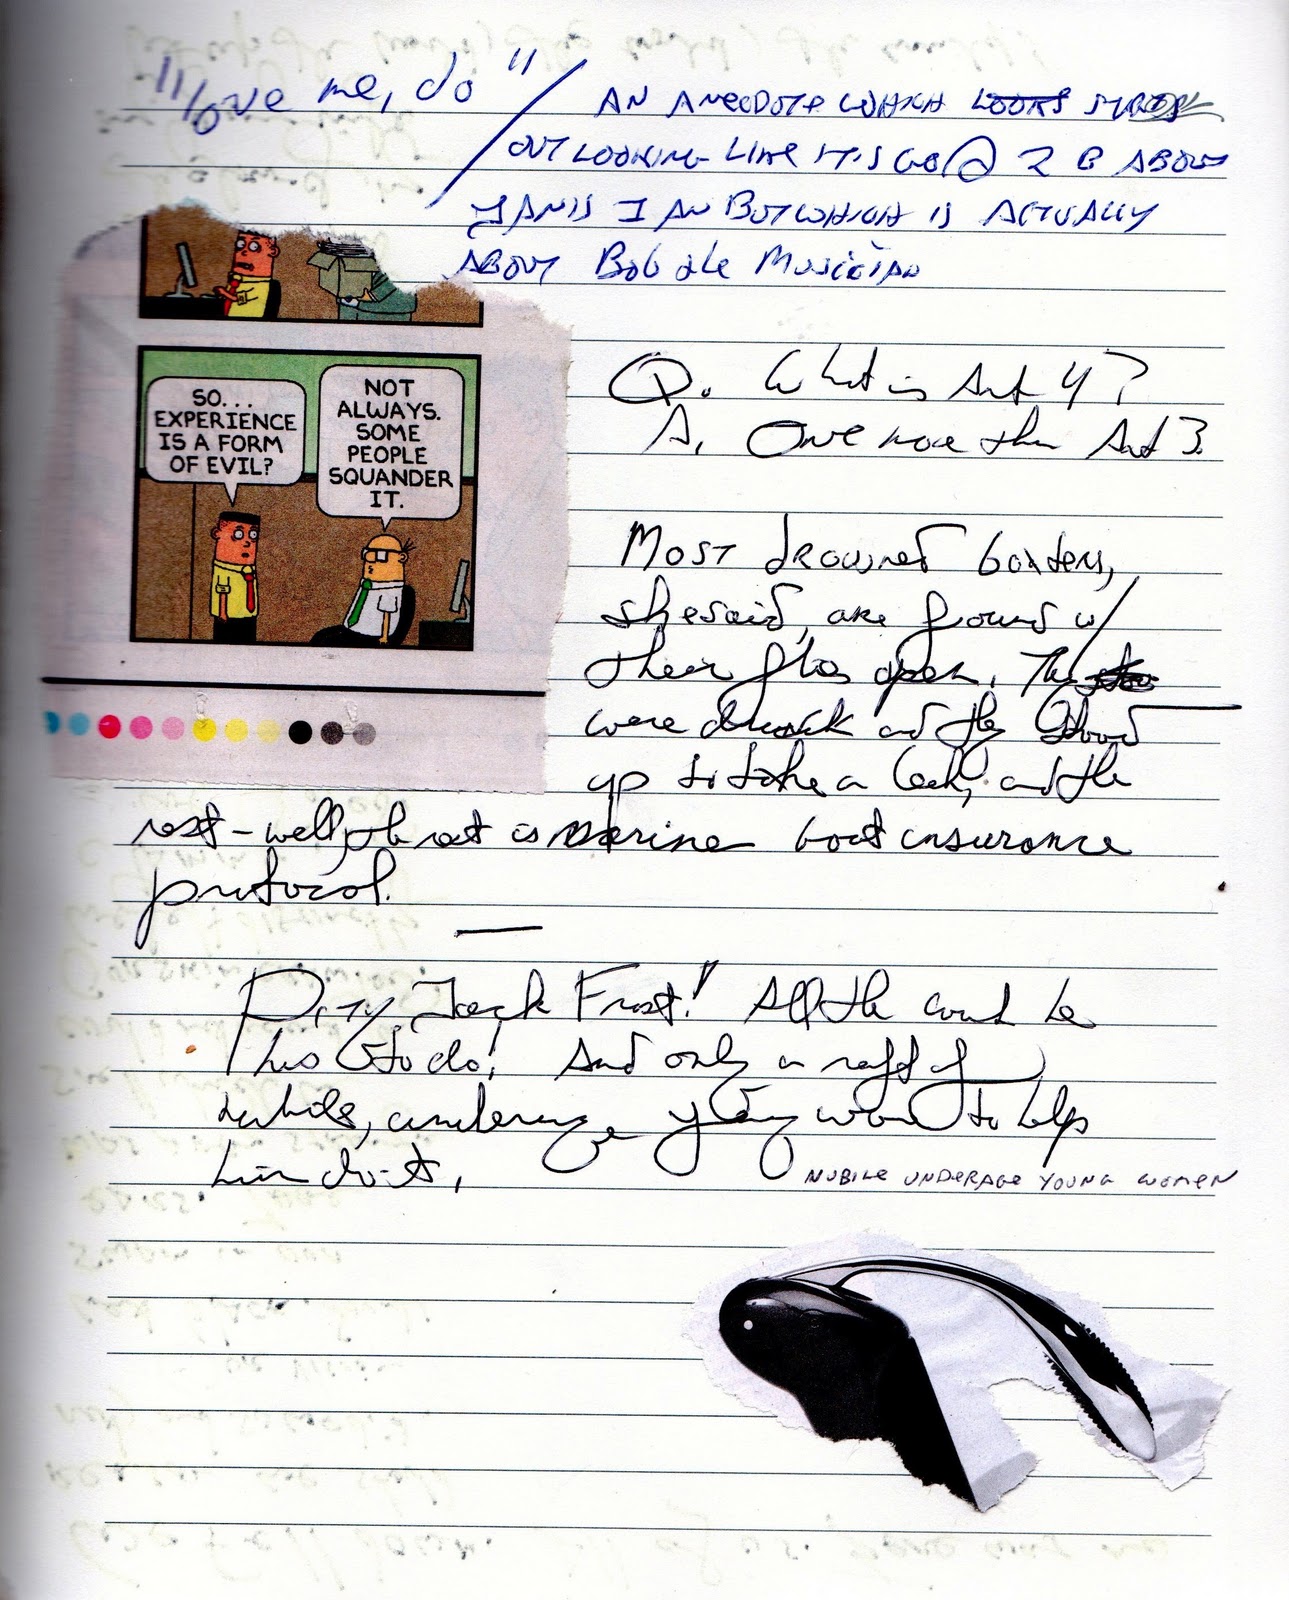 "love me, do" / AN ANECDOTE WHICH LOOKS STARTS
OUT LOOKING LIKE IT'S GO@ 2 B ABOUT
JANIS IAN BUT WHICH IS ACTUALLY
ABOUT Bob the Musician
SO...
EXPERIENCE
IS A FORM
OF EVIL?
NOT
ALWAYS.
SOME
PEOPLE
SQUANDER
IT.
Q. What is Art 4?
A. One more than Art 3.
Most drowned boaters,
she said, are found w/
their flies open. They
were drunk and they stood
up to take a leak, and the
rest - well, the rest is marine boat insurance
protocol.
Pity Jack Frost! All the work he
has to do! And only a raft of
nubile, underage young women to help
him do it.
NUBILE UNDERAGE YOUNG WOMEN